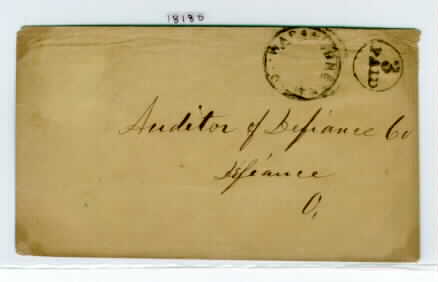 18180
3
PAID
Auditor of Defiance Co
Defiance
O,